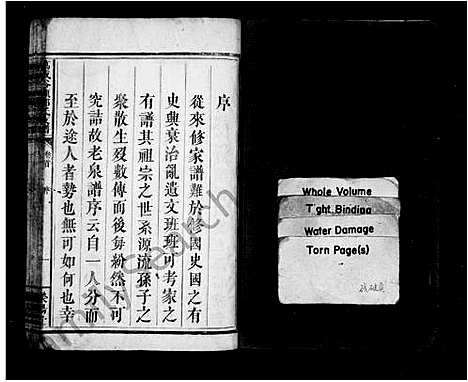 序
從來修家譜難於修國史國之有
史興衰治亂遺文班班可考家之
有譜其祖宗之世系源流孫子之
聚散生歿數傳而後每紛然不可
究詰故老泉譜序云自一人分而
至於途人者勢也無可如何也幸
卷首
序
一
Whole Volume
Tight Binding
Water Damage
Torn Page(s)
FamilySearch